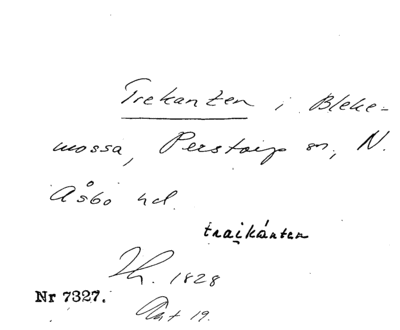 Trekanten i Bleke-
mossa, Perstorp sn, N.
Åsbo hd.
traikánten
Th. 1828
Nr 7327.
19.